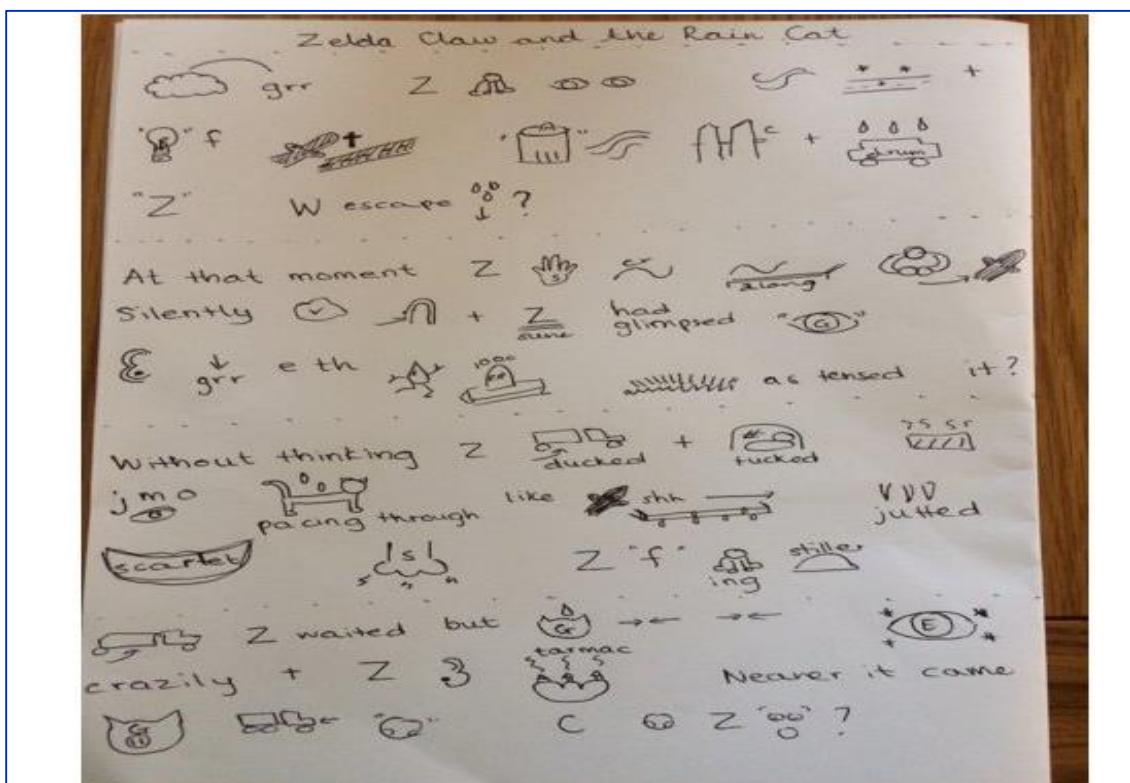 Zelda Claw and the Rain Cat
grr Z +
"" f "" c + drum
"Z" W escape ?
At that moment Z s along
Silently + Z had glimpsed "G"
grr e th 1000 as tensed it?
Without thinking Z ducked + tucked
j m o pacing through like shh jutted
scarlet S Z "f" ing stiller
Z waited but G tarmac E
crazily + Z Nearer it came
C Z "" ?